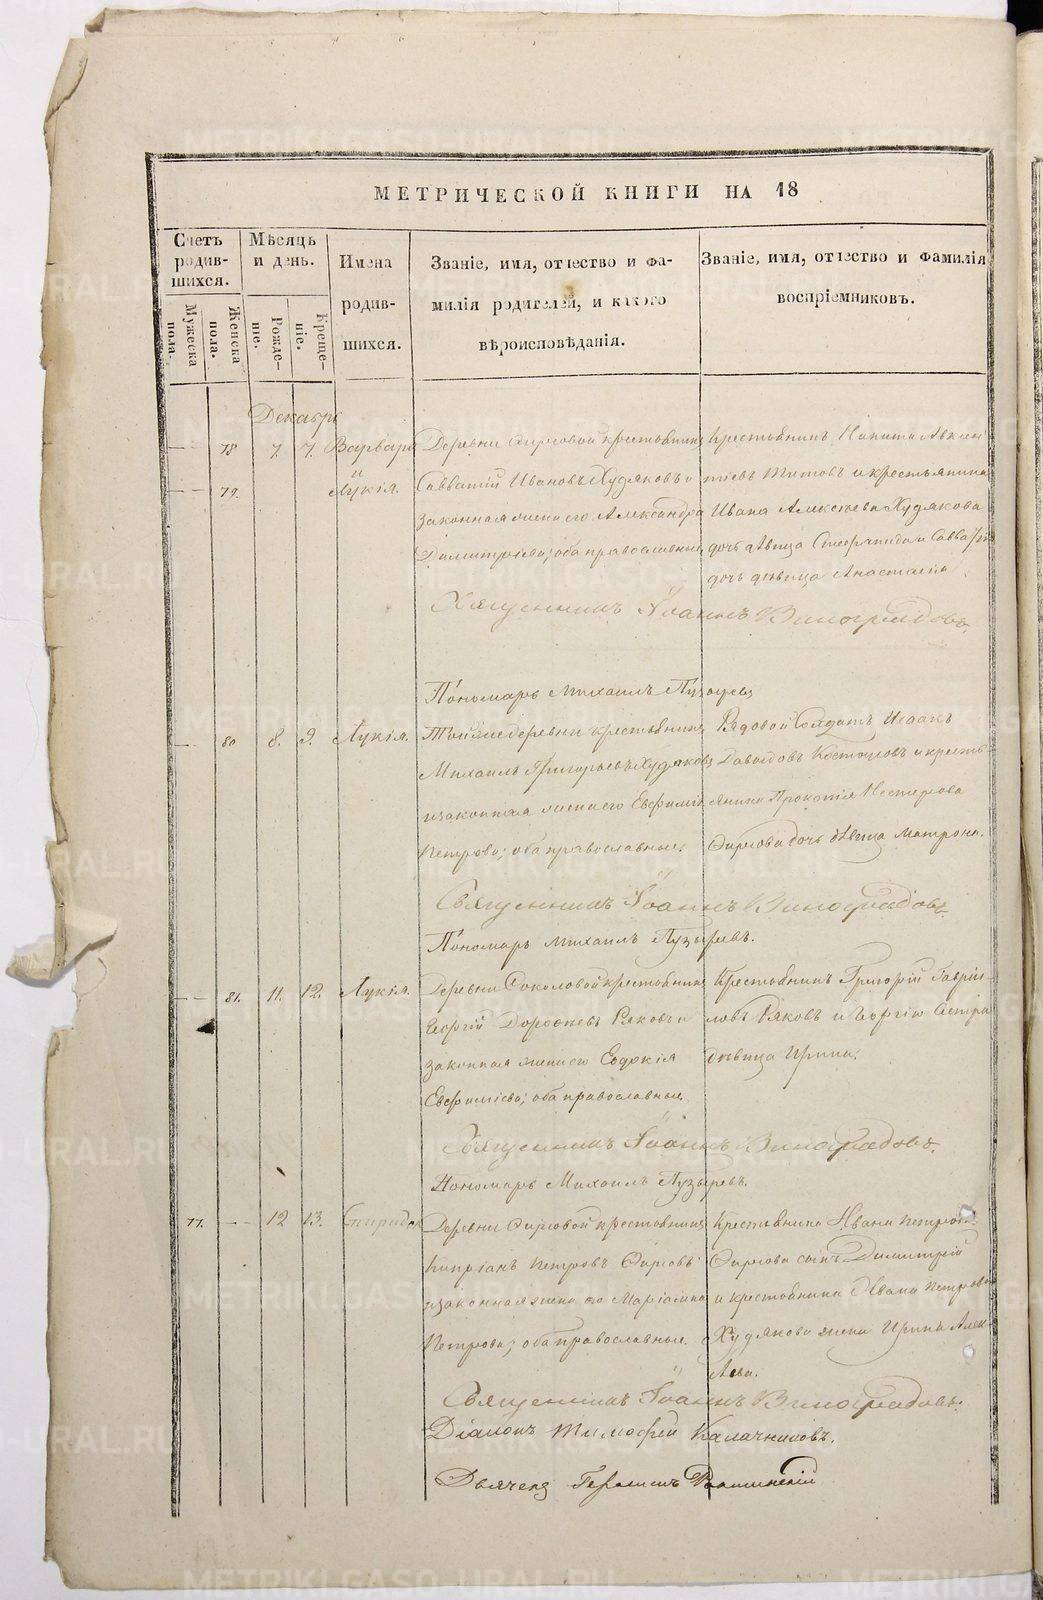 МЕТРИЧЕСКОЙ КНИГИ НА 18
Счетъ родив-шихся.
Мужеска пола.
Женска пола.
Мѣсяцъ и день.
Рожде-ніе.
Креще-ніе.
Имена родив-шихся.
Званіе, имя, отчество и фа-
милія родителей, и какого
вѣроисповѣданія.
Званіе, имя, отчество и фамилія
воспріемниковъ.
Декабрь
78 7. 7. Варвара
и
79. Лукія.
Деревни крестьянинъ
Савватій Ивановъ Худяковъ и
законная жена его Александра
Димитріева; оба православные
Крестьянинъ Никита Авксен
тіевъ Титовъ и крестьянина
Ивана Алексѣева Худякова
дочь дѣвица
дочь дѣвица Анастасія
Священникъ Іоаннъ Виноградовъ.
Пономарь Михаилъ Пузыревъ
80 8. 9. Лукія.
Той же деревни крестьянинъ
Михаилъ Григорьевъ Худяковъ
и законная жена его Евфимія
Петрова; оба православные.
Рядовой Солдатъ Исаакъ
Давыдовъ и кресть
янина Прокопія Нестерова
дочь дѣвица Матрона.
Священникъ Іоаннъ Виноградовъ.
Пономарь Михаилъ Пузыревъ.
81. 11. 12. Лукія.
Деревни Соколовой крестьянинъ
Георгій Дороѳеевъ Ряковъ и
законная жена его Евдокія
Евфиміева; оба православные
Крестьянинъ Григорій Гаврі-
ловъ Ряковъ и Георгія сестра
дѣвица Ирина.
Священникъ Іоаннъ Виноградовъ.
Пономарь Михаилъ Пузыревъ.
77. 12 13. Спиридонъ
Деревни крестьянинъ
Кипріанъ Петровъ
и законная жена его Маріамна
Петрова; оба православные.
Крестьянина Ивана Петрова
сынъ Димитрій
и крестьянина Ивана Петрова
Худякова жена Ирина Алек-
Священникъ Іоаннъ Виноградовъ.
Діаконъ Тимофей Калачниковъ.
Дьячекъ Герасимъ
METRIKI.GASO-URAL.RU